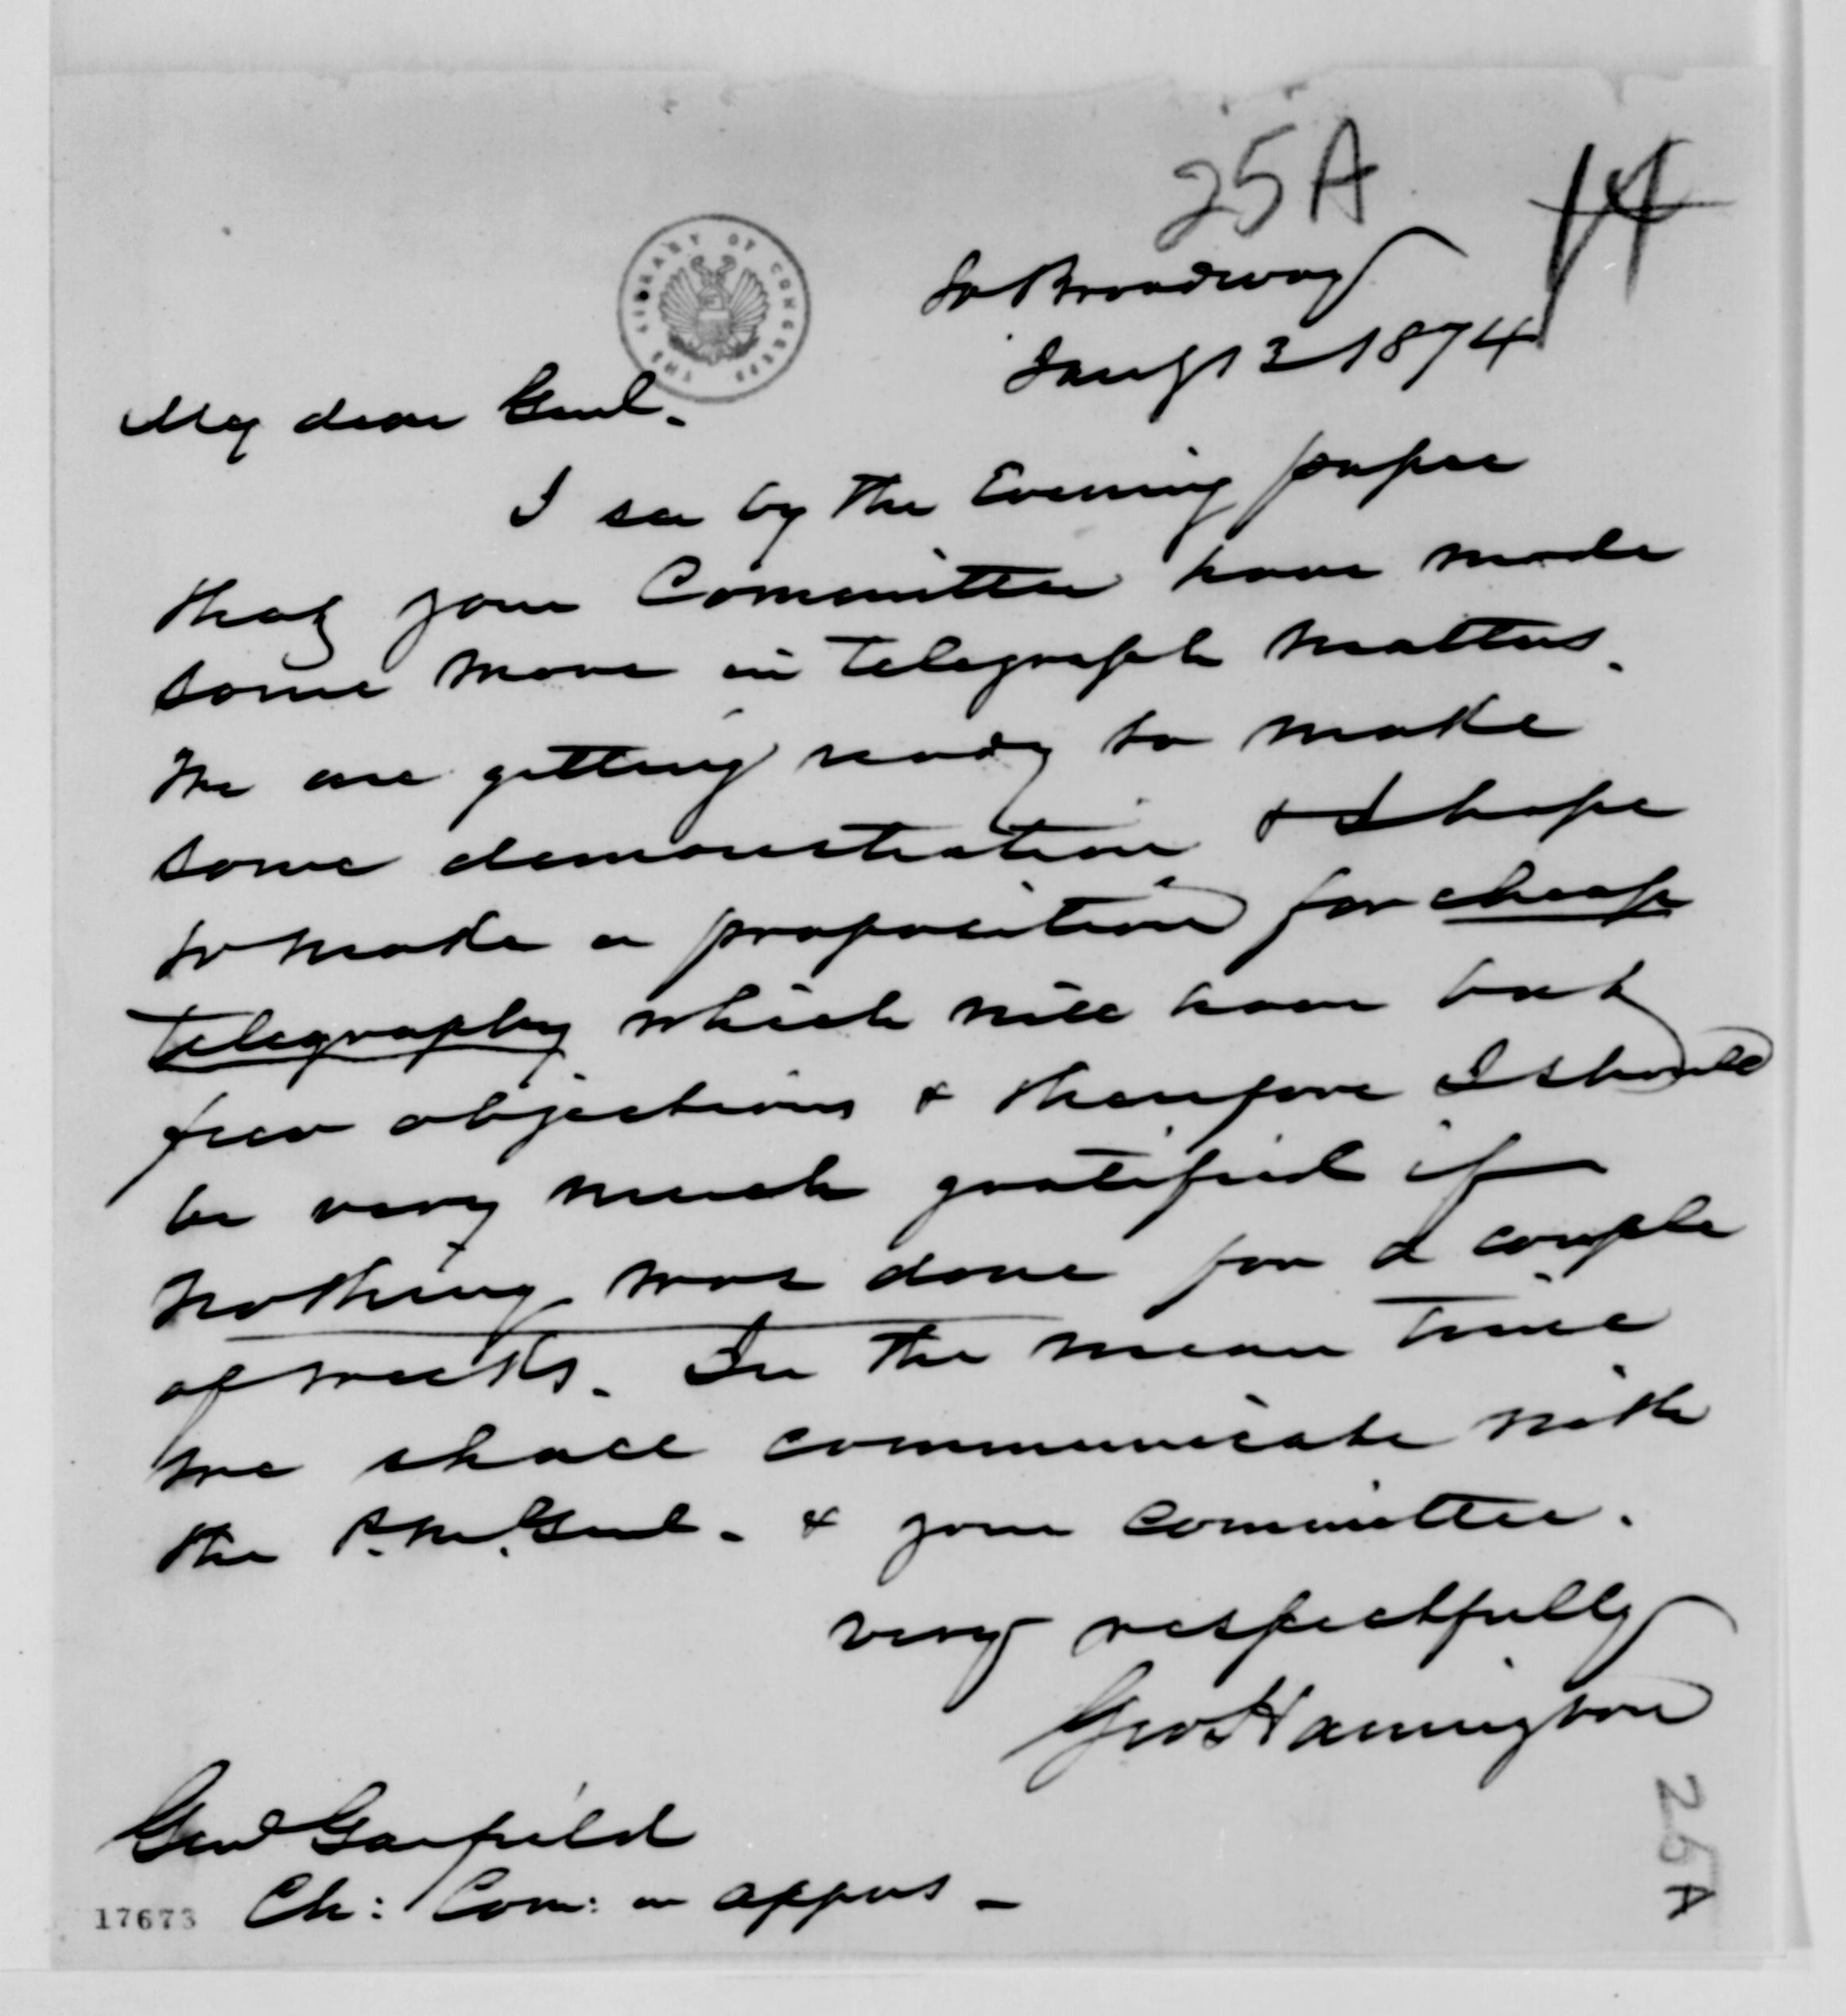 25A
14
Broadway
Jany 13 1874
THE LIBRARY OF CONGRESS
My dear Genl.
I see by the Evening paper
that your Committee have made
some move in telegraph matters.
We are getting ready to make
some demonstration & I hope
to make a proposition for cheap
telegraphy which will have but
few objections & therefore I should
be very much gratified if
nothing was done for a couple
of weeks. In the mean time
we shall communicate with
the P.M. Genl. & your Committee.
very respectfully
Geo Harrington
Genl Garfield
Ch: Com: on appns -
17673
25A